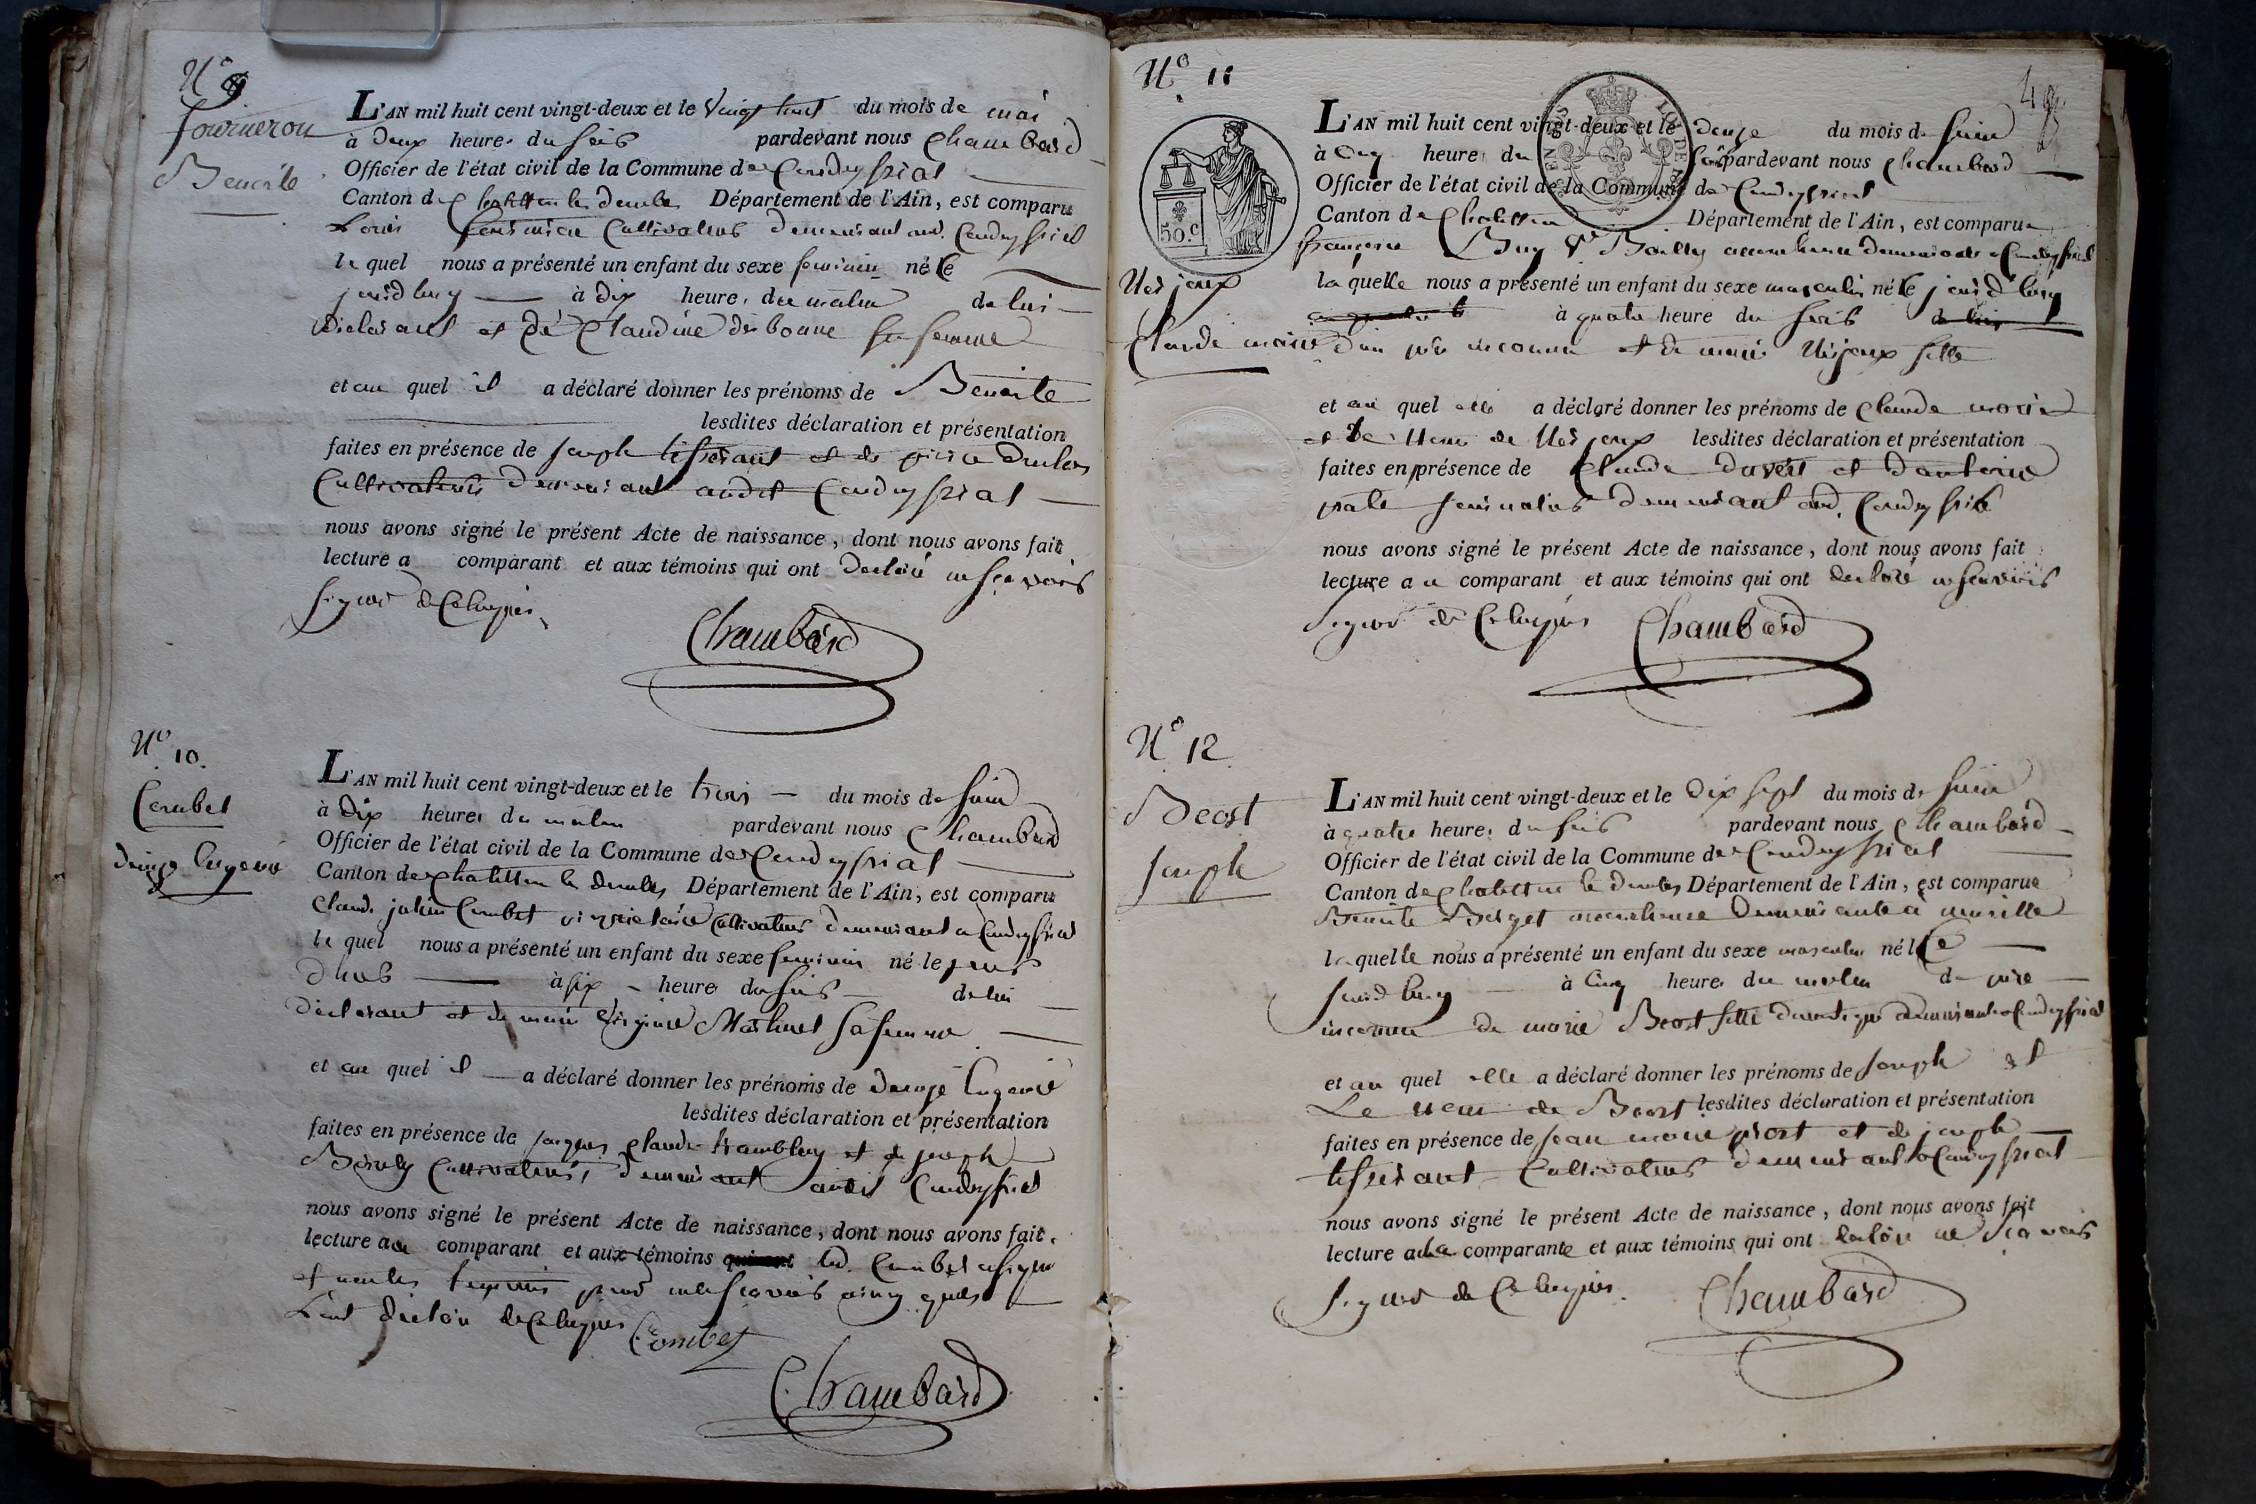 N° 9
fourneron
Benoite
L'AN mil huit cent vingt-deux et le vingt huit du mois de mai
à deux heures du soir pardevant nous Chambard
Officier de l'état civil de la Commune de Condeyssiat
Canton de Chatillon les dombes Département de l'Ain, est comparu
Louis Cultivateur demeurant aud. Condeyssiat
le quel nous a présenté un enfant du sexe feminin né le
jourd'huy à dix heure, du matin de lui
declarant et de Claudine desbonne sa femme
et au quel il a déclaré donner les prénoms de Benoite
lesdites déclaration et présentation
faites en présence de joseph tisserant et de pierre
Cultivateurs demeurant audit Condeyssiat
nous avons signé le présent Acte de naissance, dont nous avons fait
lecture a comparant et aux témoins qui ont declaré ne scavoir
signer de Ce
Chambard
N° 10.
Combet
Eugenie
L'AN mil huit cent vingt-deux et le trois du mois de juin
à dix heures du matin pardevant nous Chambard
Officier de l'état civil de la Commune de Condeyssiat
Canton de Chatillon les dombes Département de l'Ain, est comparu
Claude julien Combet proprietaire Cultivateur demeurant a Condeyssiat
le quel nous a présenté un enfant du sexe feminin né le jour
d'hier à six heure du soir de lui
declarant et de marie Virginie Mathuet sa femme
et au quel il a déclaré donner les prénoms de Eugenie
lesdites déclaration et présentation
faites en présence de jacques Claude trambley et de joseph
Cultivateurs, demeurant audit Condeyssiat
nous avons signé le présent Acte de naissance, dont nous avons fait
lecture au comparant et aux témoins qui ont led. Combet a signé
et non les temoins pour ne scavoir
declaré de Ce
Combet
Chambard
N° 11
49
50.C
Claude marie
L'AN mil huit cent vingt-deux et le douze du mois de juin
à Cinq heure du soir pardevant nous Chambard
Officier de l'état civil de la Commune de Condeyssiat
Canton de Chatillon Département de l'Ain, est comparue
françoise Buy Ve accoucheuse demeurant a Condeyssiat
la quelle nous a présenté un enfant du sexe masculin né le jourd'huy
à quatre heure du soir de lui
d'un père inconnu et de marie fille
et au quel elle a déclaré donner les prénoms de Claude marie
et le nom de lesdites déclaration et présentation
faites en présence de Claude et d'antoine
demeurant aud. Condeyssiat
nous avons signé le présent Acte de naissance, dont nous avons fait
lecture a comparant et aux témoins qui ont declaré ne scavoir
signer de Ce
Chambard
N° 12
Beost
joseph
L'AN mil huit cent vingt-deux et le dix sept du mois de juin
à quatre heures du soir pardevant nous Chambard
Officier de l'état civil de la Commune de Condeyssiat
Canton de Chatillon les dombes Département de l'Ain, est comparue
Benoite Berget accoucheuse demeurante à
laquelle nous a présenté un enfant du sexe masculin né le
jourd'huy à Cinq heures du matin de père
inconnu de marie Beost fille domestique demeurante a Condeyssiat
et au quel elle a déclaré donner les prénoms de joseph et
Le nom de Beost lesdites déclaration et présentation
faites en présence de jean marie et de joseph
tisserant Cultivateurs demeurant a Condeyssiat
nous avons signé le présent Acte de naissance, dont nous avons fait
lecture a la comparante et aux témoins qui ont declaré ne scavoir
signer de Ce
Chambard